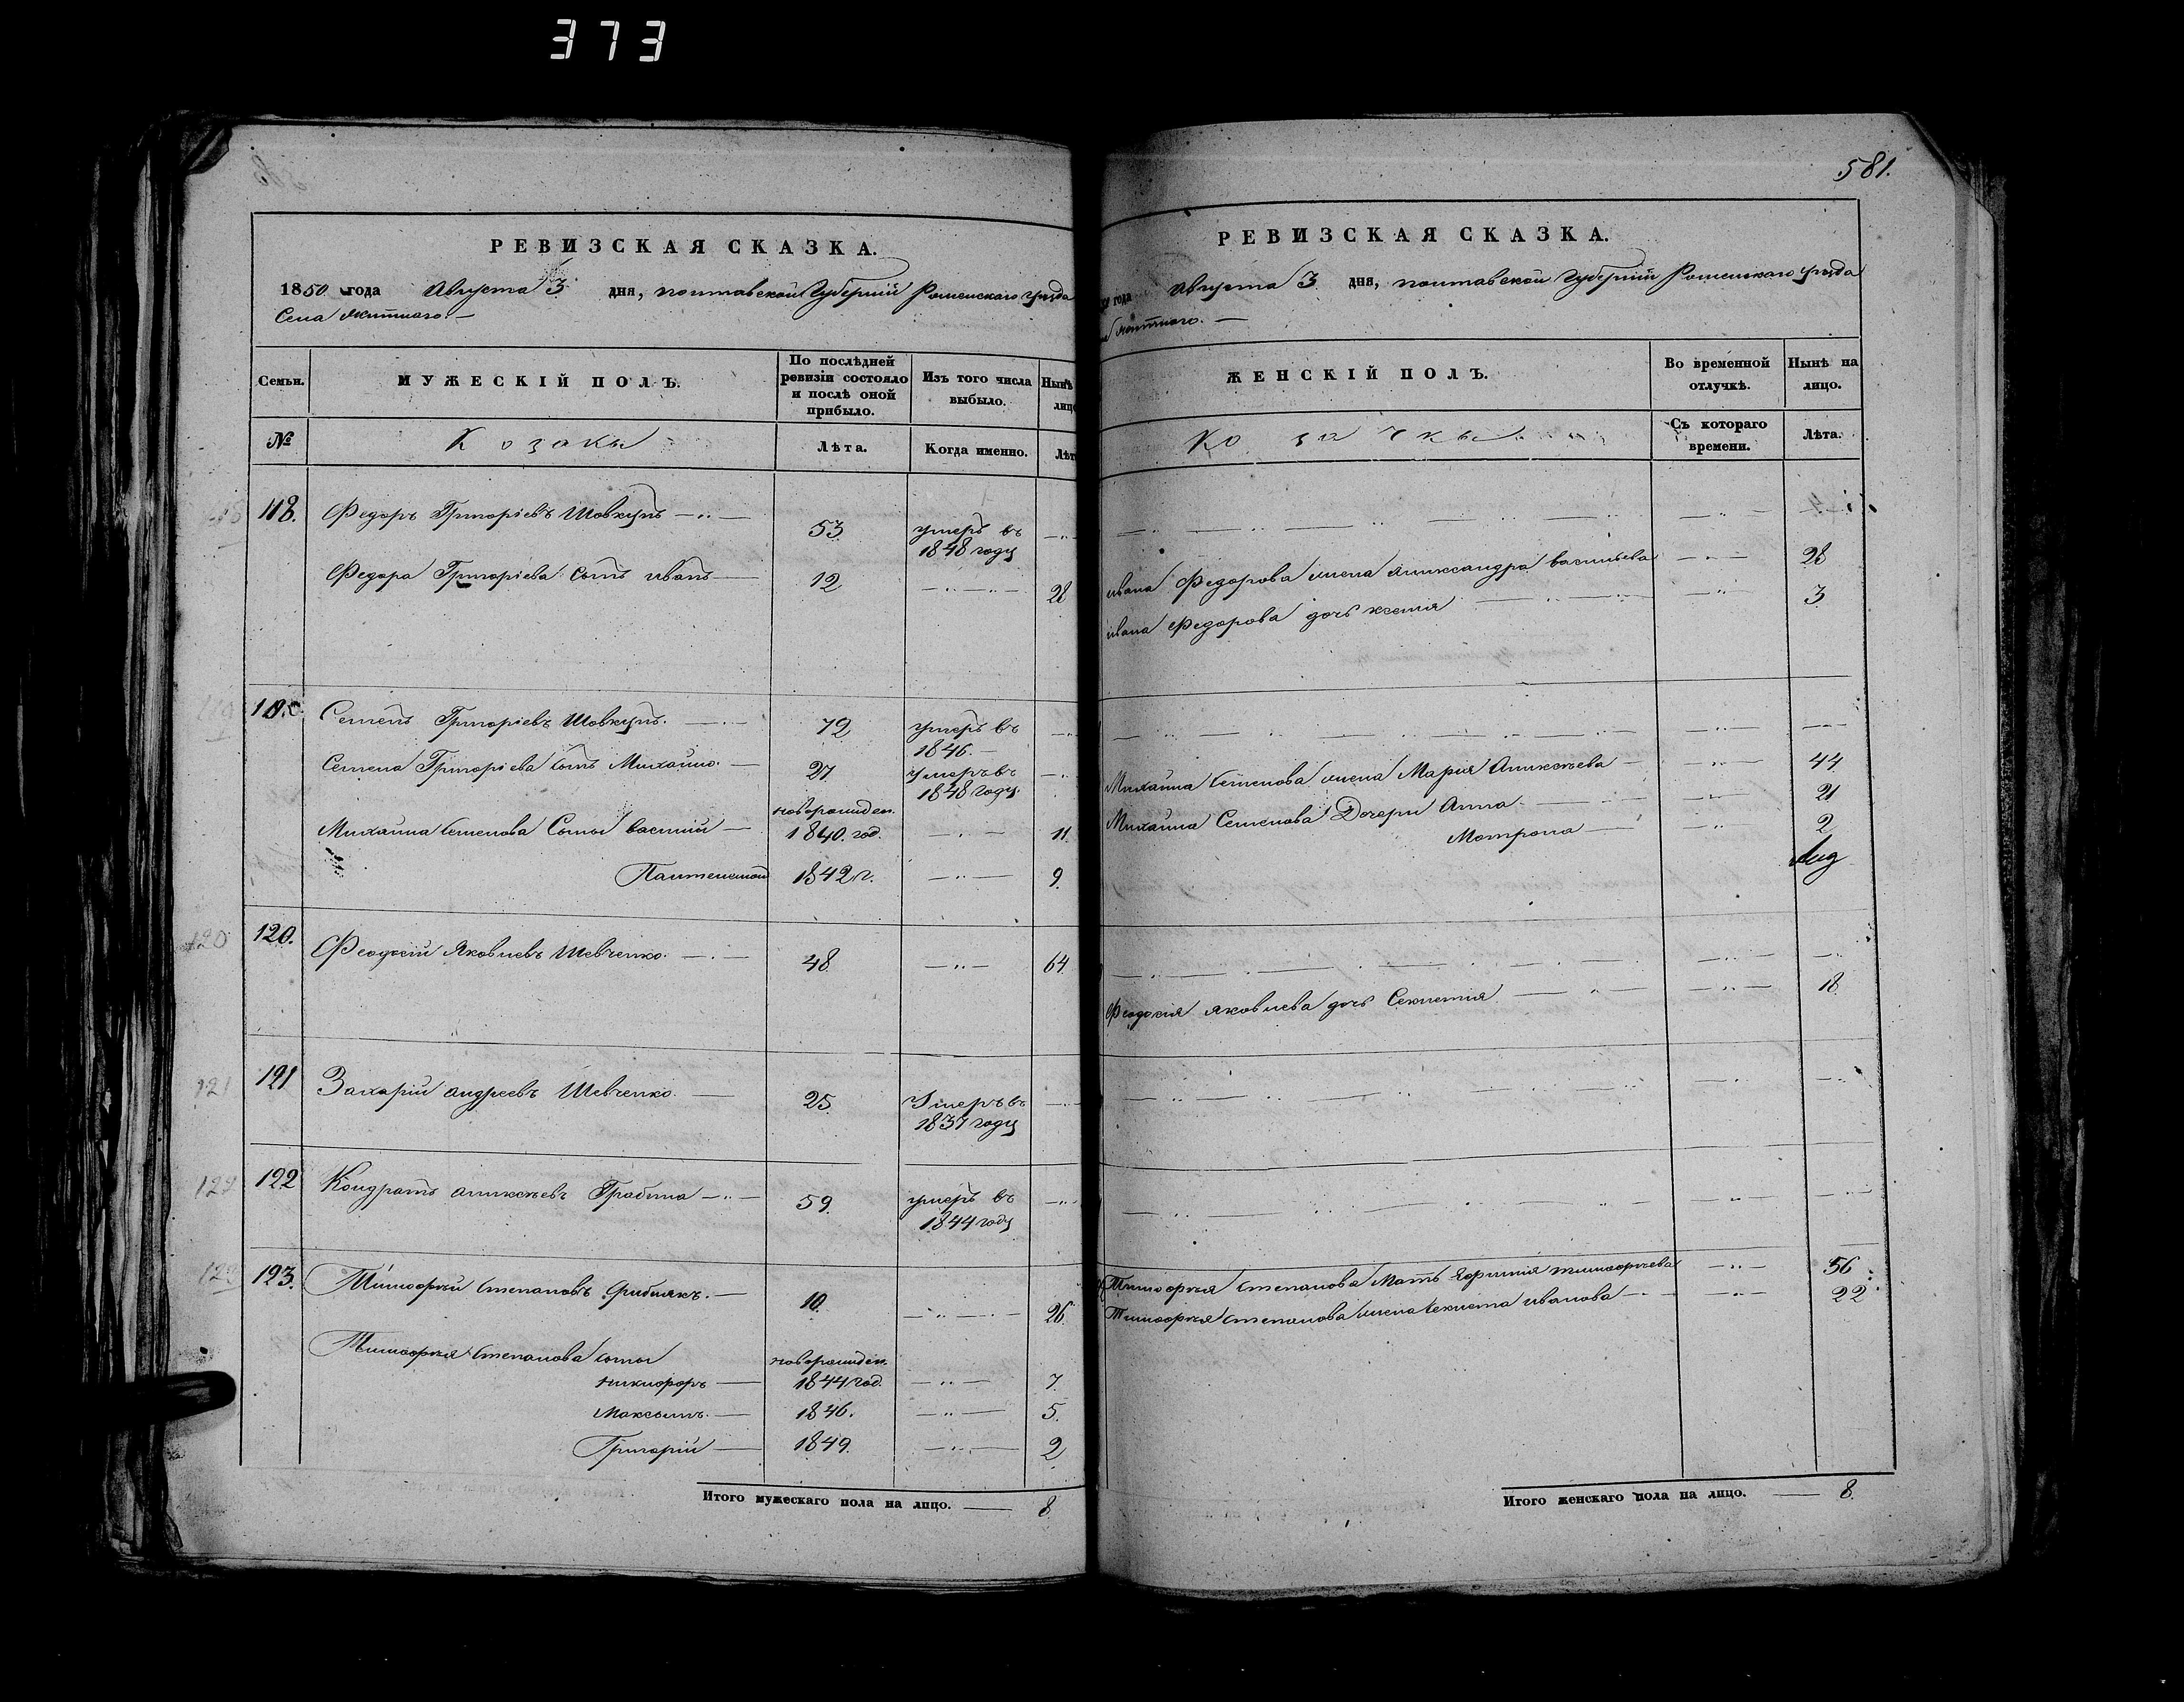 373
581.
РЕВИЗСКАЯ СКАЗКА.
1850 года Августа 3 дня, полтавской Губерніи Роменскаго уѣзда
Села
Семьи.
МУЖЕСКІЙ ПОЛЪ.
По послѣдней ревизіи состояло и послѣ оной прибыло.
Изъ того числа выбыло.
Нынѣ
лицо
№
Козаки
Лѣта.
Когда именно.
Лѣт
118. Федоръ Григоріевъ Шовкунъ 53 умеръ въ 1848 году
Федора Григоріева сынъ иванъ 12 28
Семенъ Григоріевъ Шовкунъ. 72 умеръ въ 1846.
Семена Григоріева сынъ Михайло. 27 Умеръ въ 1848 году
новорожден.
Михайла Семенова Сыны василій 1840. год. 11.
1842 г. 9.
120. Феодосій Яковлевъ Шевченко. 48 64
121 Захарій андреевъ Шевченко. 25 Умеръ въ
1837 году
122 Кондратъ алиексѣевъ 59. умеръ въ
1844 году
123. Тимофѣй Степановъ 10. 26.
Тимофѣя Степанова сыны новорожден.
никифоръ 1844 год. 7.
Максымъ. 1846. 5.
Григорій 1849. 2
Итого мужескаго пола на лицо. 8.
РЕВИЗСКАЯ СКАЗКА.
года Августа 3 дня, полтавской Губерніи Роменскаго уѣзда
ЖЕНСКІЙ ПОЛЪ.
Во временной отлучкѣ.
Нынѣ на лицо.
Козачки
Съ котораго времени.
Лѣта.
ивана Федорова жена Александра васильева 28
ивана Федорова дочь ксенія 3
Михайла Семенова жена Марія Алиексѣева 44
Михайла Семенова Дочери Анна 21
Мотрона 2
Феодосія яковлева дочь 18
Тимофѣя Степанова Мать Тимофѣева 56
Тимофѣя Степанова жена иванова 22
Итого женскаго пола на лицо. 8.
119
120
121
122
123